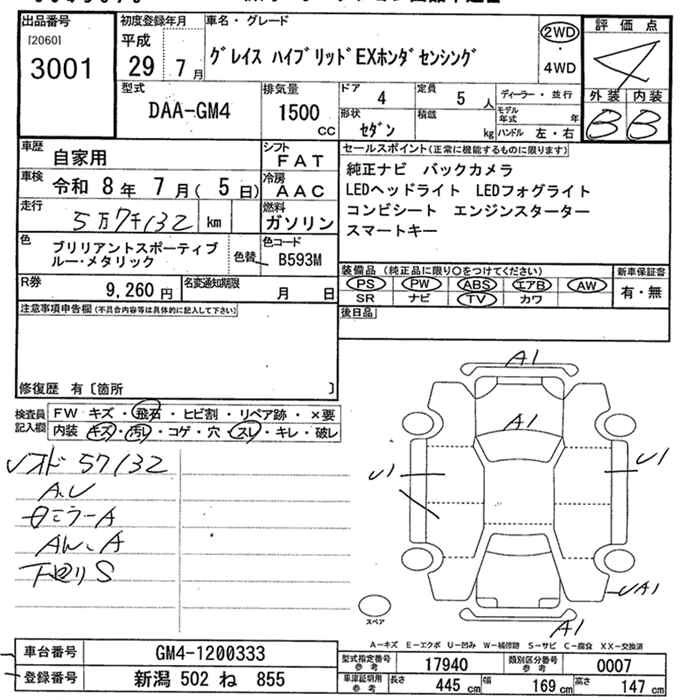 出品番号
[2060]
3001
初度登録年月
平成
29 年 7 月
車名・グレード
グレイス ハイブリッドEXホンダセンシング
2WD
・
4WD
評価点
4
外装 内装
B B
型式
DAA-GM4
排気量
1500 CC
ドア 4
定員 5 人
形状 セダン
積載 kg
ディーラー・並行
モデル年式 年
ハンドル 左・右
車歴 自家用
シフト FAT
車検 令和 8年 7月( 5日)
冷房 AAC
走行 5万7千132 km
燃料 ガソリン
色 ブリリアントスポーティブルー・メタリック
色替
色コード B593M
R券 9,260円
名変通知期限 月 日
セールスポイント(正常に機能するものに限ります)
純正ナビ バックカメラ
LEDヘッドライト LEDフォグライト
コンビシート エンジンスターター
スマートキー
装備品 (純正品に限り○をつけてください)
新車保証書
PS PW ABS エアB AW
有・無
SR ナビ TV カワ
後日品
注意事項申告欄(不具合内容等は具体的に記入して下さい)
修復歴 有〔箇所 〕
検査員記入欄
FW キズ・飛石・ヒビ割・リペア跡・×要
内装 キズ・汚れ・コゲ・穴・スレ・キレ・破レ
57132
A.U
ミラーA
下回りS
A1
A1
U1
U1
UA1
A1
スペア
A-キズ E-エクボ U-凹み W-補修跡 S-サビ C-腐食 XX-交換済
車台番号 GM4-1200333
登録番号 新潟 502 ね 855
型式指定番号参考 17940
類別区分番号参考 0007
車庫証明用参考 長さ 445 cm 幅 169 cm 高さ 147 cm